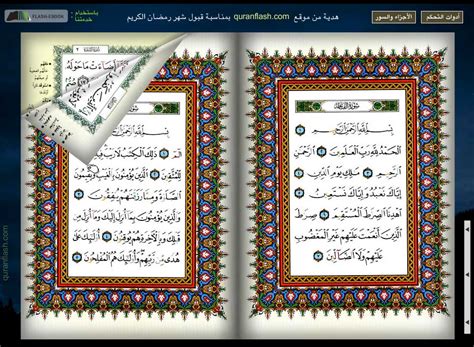 أدوات التحكم
الأجزاء والسور
هدية من موقع quranflash.com بمناسبة قبول شهر رمضان الكريم
باستخدام
خدمتنا
FLASH-EBOOK
سُورَةُ الفَاتِحَةِ
بِسْمِ اللَّهِ الرَّحْمَٰنِ الرَّحِيمِ ١
الْحَمْدُ لِلَّهِ رَبِّ الْعَٰلَمِينَ ٢
الرَّحْمَٰنِ الرَّحِيمِ ٣ مَٰلِكِ يَوْمِ الدِّينِ ٤
إِيَّاكَ نَعْبُدُ وَإِيَّاكَ نَسْتَعِينُ ٥
اهْدِنَا الصِّرَٰطَ الْمُسْتَقِيمَ ٦ صِرَٰطَ
الَّذِينَ أَنْعَمْتَ عَلَيْهِمْ غَيْرِ الْمَغْضُوبِ
عَلَيْهِمْ وَلَا الضَّالِّينَ ٧
بِسْمِ اللَّهِ الرَّحْمَٰنِ الرَّحِيمِ
ذَٰلِكَ الْكِتَٰبُ لَا رَيْبَ فِيهِ هُدًى
لِلْمُتَّقِينَ ٢ الَّذِينَ يُؤْمِنُونَ بِالْغَيْبِ وَيُقِيمُونَ
الصَّلَوٰةَ وَمِمَّا رَزَقْنَٰهُمْ يُنْفِقُونَ ٣
وَالَّذِينَ يُؤْمِنُونَ بِمَا أُنْزِلَ إِلَيْكَ وَمَا أُنْزِلَ مِنْ
قَبْلِكَ وَبِالْآخِرَةِ هُمْ يُوقِنُونَ ٤ أُولَٰئِكَ عَلَىٰ
هُدًى مِنْ رَبِّهِمْ وَأُولَٰئِكَ هُمُ الْمُفْلِحُونَ ٥
quranflash.com